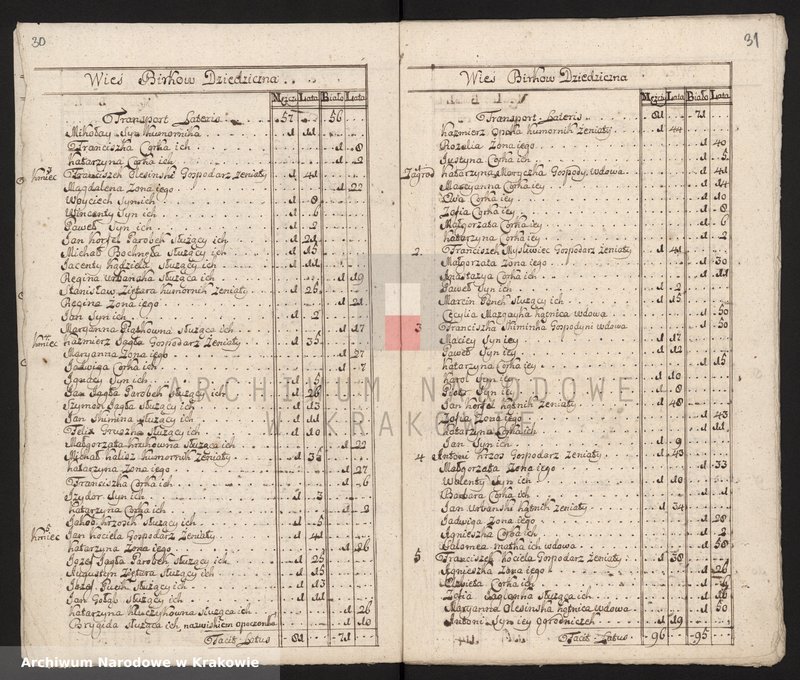 30
Wieś Birkow Dziedziczna
Męzcz Lata Biało Lata
Transport Lateris 57 56
Mikołay Syn humornika 1 11
Franciszka Corka ich 1 8
katarzyna Corka ich 1 2
kmieć Franciszek Olesinski Gospodarz żeniaty 1 41
Magdalena Zona iego 1 22
Woyciech Syn ich 1 8
Wincenty Syn ich 1 6
Paweł Syn ich 1 2
Jan horfel Parobek służący ich 1 21
Michał Bochnyla służący ich 1 15
Jacenty służący ich 1 11
Regina Urbanska służąca ich 1 19
Stanisław Ziętara humornik żeniaty 1 26
Regina Zona iego 1 21
Jan Syn ich 1 2
Maryanna Piątkowna służąca ich 1 17
kmieć kazmierz Jagła Gospodarz żeniaty 1 35
Maryanna Zona iego 1 27
Jadwiga Corka ich 1 7
Ignacy Syn ich 1 15
Jan Jagła Parobek służący ich 1 26
Szymon Jagła służący ich 1 13
Jan Shimina służący ich 1 11
Felix Gruszka służący ich 1 10
Małgorzata służąca ich 1 22
Michał halisz humornik żeniaty 1 36
katarzyna Zona iego 1 27
Franciszka Corka ich 1 6
Jzydor Syn ich 1 3
katarzyna Corka ich 1 2
Jakob krzozik służący ich 1 5
kmieć Jan kociela Gospodarz żeniaty 1 41
katarzyna Zona iego 1 26
Jozef Jagła Parobek służący ich 1 25
Augustyn Ziętara służący ich 1 15
Jozef służący ich 1 13
Jan Gołąb służący ich 1 11
katarzyna służąca ich 1 26
Brygida służąca ich nazwiskiem opaczonka 1 10
Facit Latus 81 71
31
Wieś Birkow Dziedziczna
Męzcz Lata Biało Lata
Transport Lateris 81 71
kazmierz Opoka humornik żeniaty 1 44
Rozalia Zona iego 1 40
Justyna Corka ich 1 5
Zagrod katarzyna Moryczka Gospody. wdowa 1 41
Maryanna Corka iey 1 14
Ewa Corka iey 1 10
Zofia Corka iey 1 8
Małgorzata Corka iey 1 6
katarzyna Corka iey 1 2
2 Franciszek Mysliwiec Gospodarz żeniaty 1 41
Małgorzata Zona iego 1 30
Anastazya Corka ich 1 11
Paweł Syn ich 1 2
Marcin służący ich 1 15
Cecylia Mazgayka kątnica wdowa 1 50
3 Franciszka Shiminka Gospodyni wdowa 1 50
Maciey Syn iey 1 17
Paweł Syn iey 1 12
katarzyna Corka iey 1 15
karol Syn iey 1 10
Piotr Syn iey 1 8
Jan horfel kątnik żeniaty 1 48
Zofia Zona iego 1 43
Katarzyna Corka ich 1 11
Jan Syn ich 1 9
4 Antoni krzos Gospodarz żeniaty 1 43
Małgorzata Zona iego 1 33
Walenty Syn ich 1 10
Barbara Corka ich 1 1
Jan Urbanski kątnik żeniaty 1 34
Jadwiga Zona iego 1 28
Agnieszka Corka ich 1 2
Salomea matka ich wdowa 1 58
5 Franciszek kociela Gospodarz żeniaty 1 38
Agnieszka Zona iego 1 26
Elżbieta Corka ich 1
Zofia służąca ich 1 16
Maryanna Olesinska kątnica wdowa 1 50
Antoni Syn iey ogrodniczek 1 19
Facit Latus 96 95
ARCHIWUM NARODOWE
W KRAKOWIE
Archiwum Narodowe w Krakowie